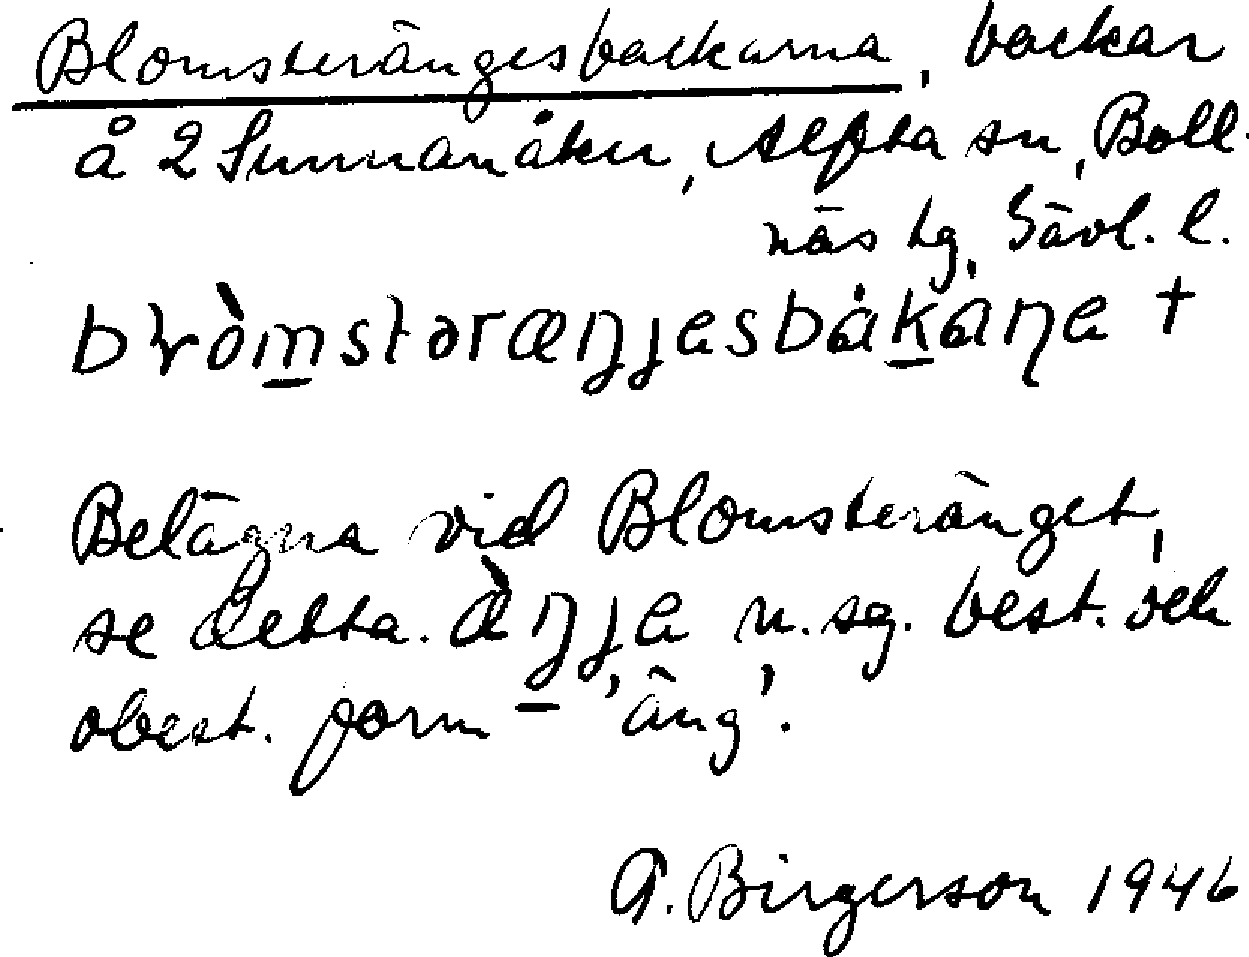 Blomsterängesbackarna, backar
å 2 Sunnanåker, Alfta sn, Boll-
näs tg, Gävl. l.
bɫòm̲stəræŋjesbåk̲åɳe +
Belägna vid Blomsteränget,
se detta. æ̀ŋ̲je n. sg. best. och
obest. form 'äng'.
G. Birgerson 1946